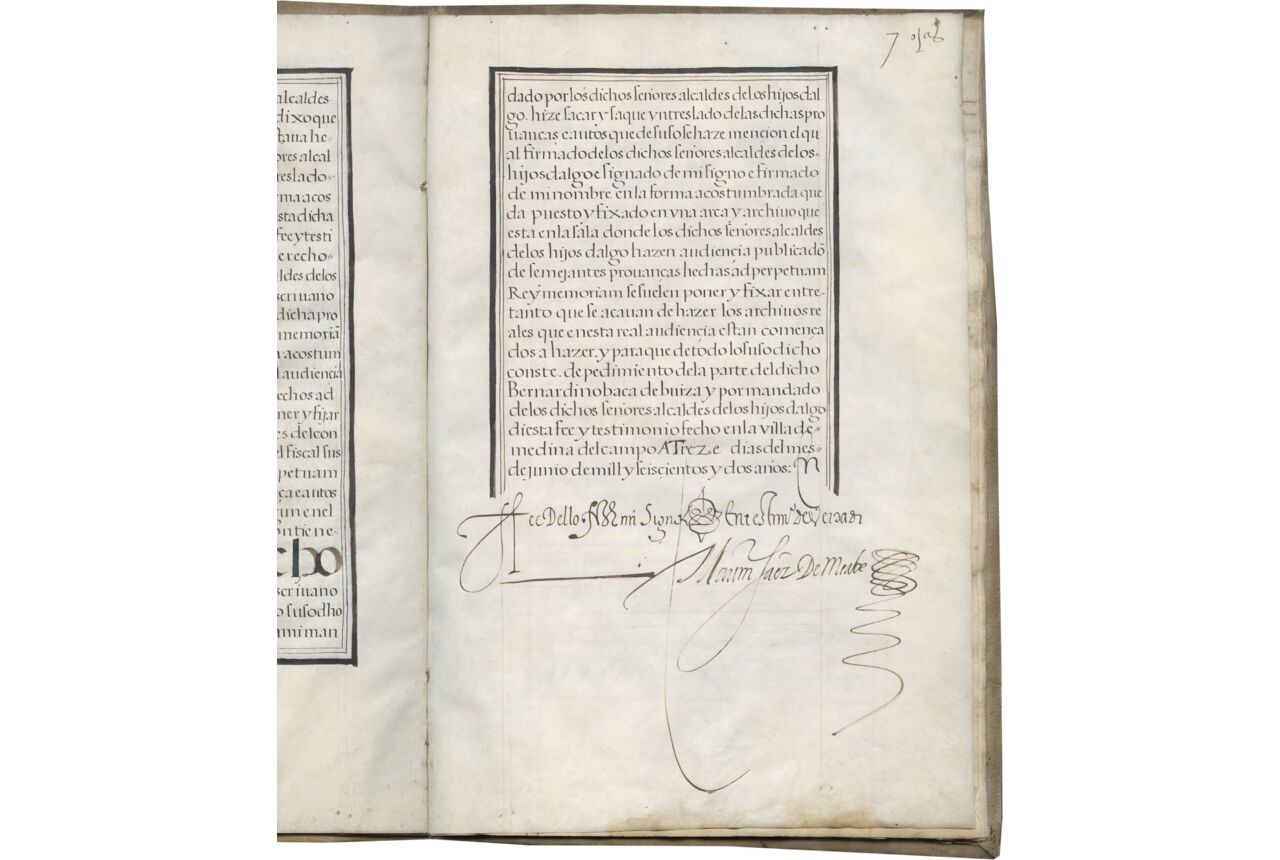 alcaldes
dixo que
taua he-
ores alcal
reslado-
ma acos
sta dicha
fee y testi
erecho
ldes delos
scriuano
dicha pro
memoriã
a acostum
l audiencia
echos ad
ner y fijar
es delcon
el fiscal sus
petuam
ça e autos
gun en el
on tiene-
cho
scriuano
o susodho
mi man
7 ojas
dado por los dichos señores alcaldes delos hijos dal
go. hize sacar y saque vn treslado delas dichas pro
uanças e autos que de suso se haze mencion el qu
al firmado delos dichos señores alcaldes delos-
hijos dalgo e signado de mi signo e firmado
de mi nombre en la forma acostumbrada que
da puesto y fixado en vna arca y archiuo que
esta enla sala donde los dichos señores alcaldes
delos hijos dalgo hazen audiencia publica dõ
de semejantes prouanças hechas ad perpetuam
Rey memoriam se suelen poner y fixar entre-
tanto que se acauan de hazer los archiuos re
ales que enesta real audiencia estan comença
dos a hazer. y para que de todo lo suso dicho
conste. de pedimiento dela parte del dicho
Bernardino baca de buiza y por mandado
delos dichos señores alcaldes delos hijos dalgo
di esta fee y testimonio fecho en la villa de-
medina del campo A Treze dias del mes-
de junio de mill y seisçientos y dos años:
fee Dello fize mi signo En testimº de Verdad
Saez De Meabe